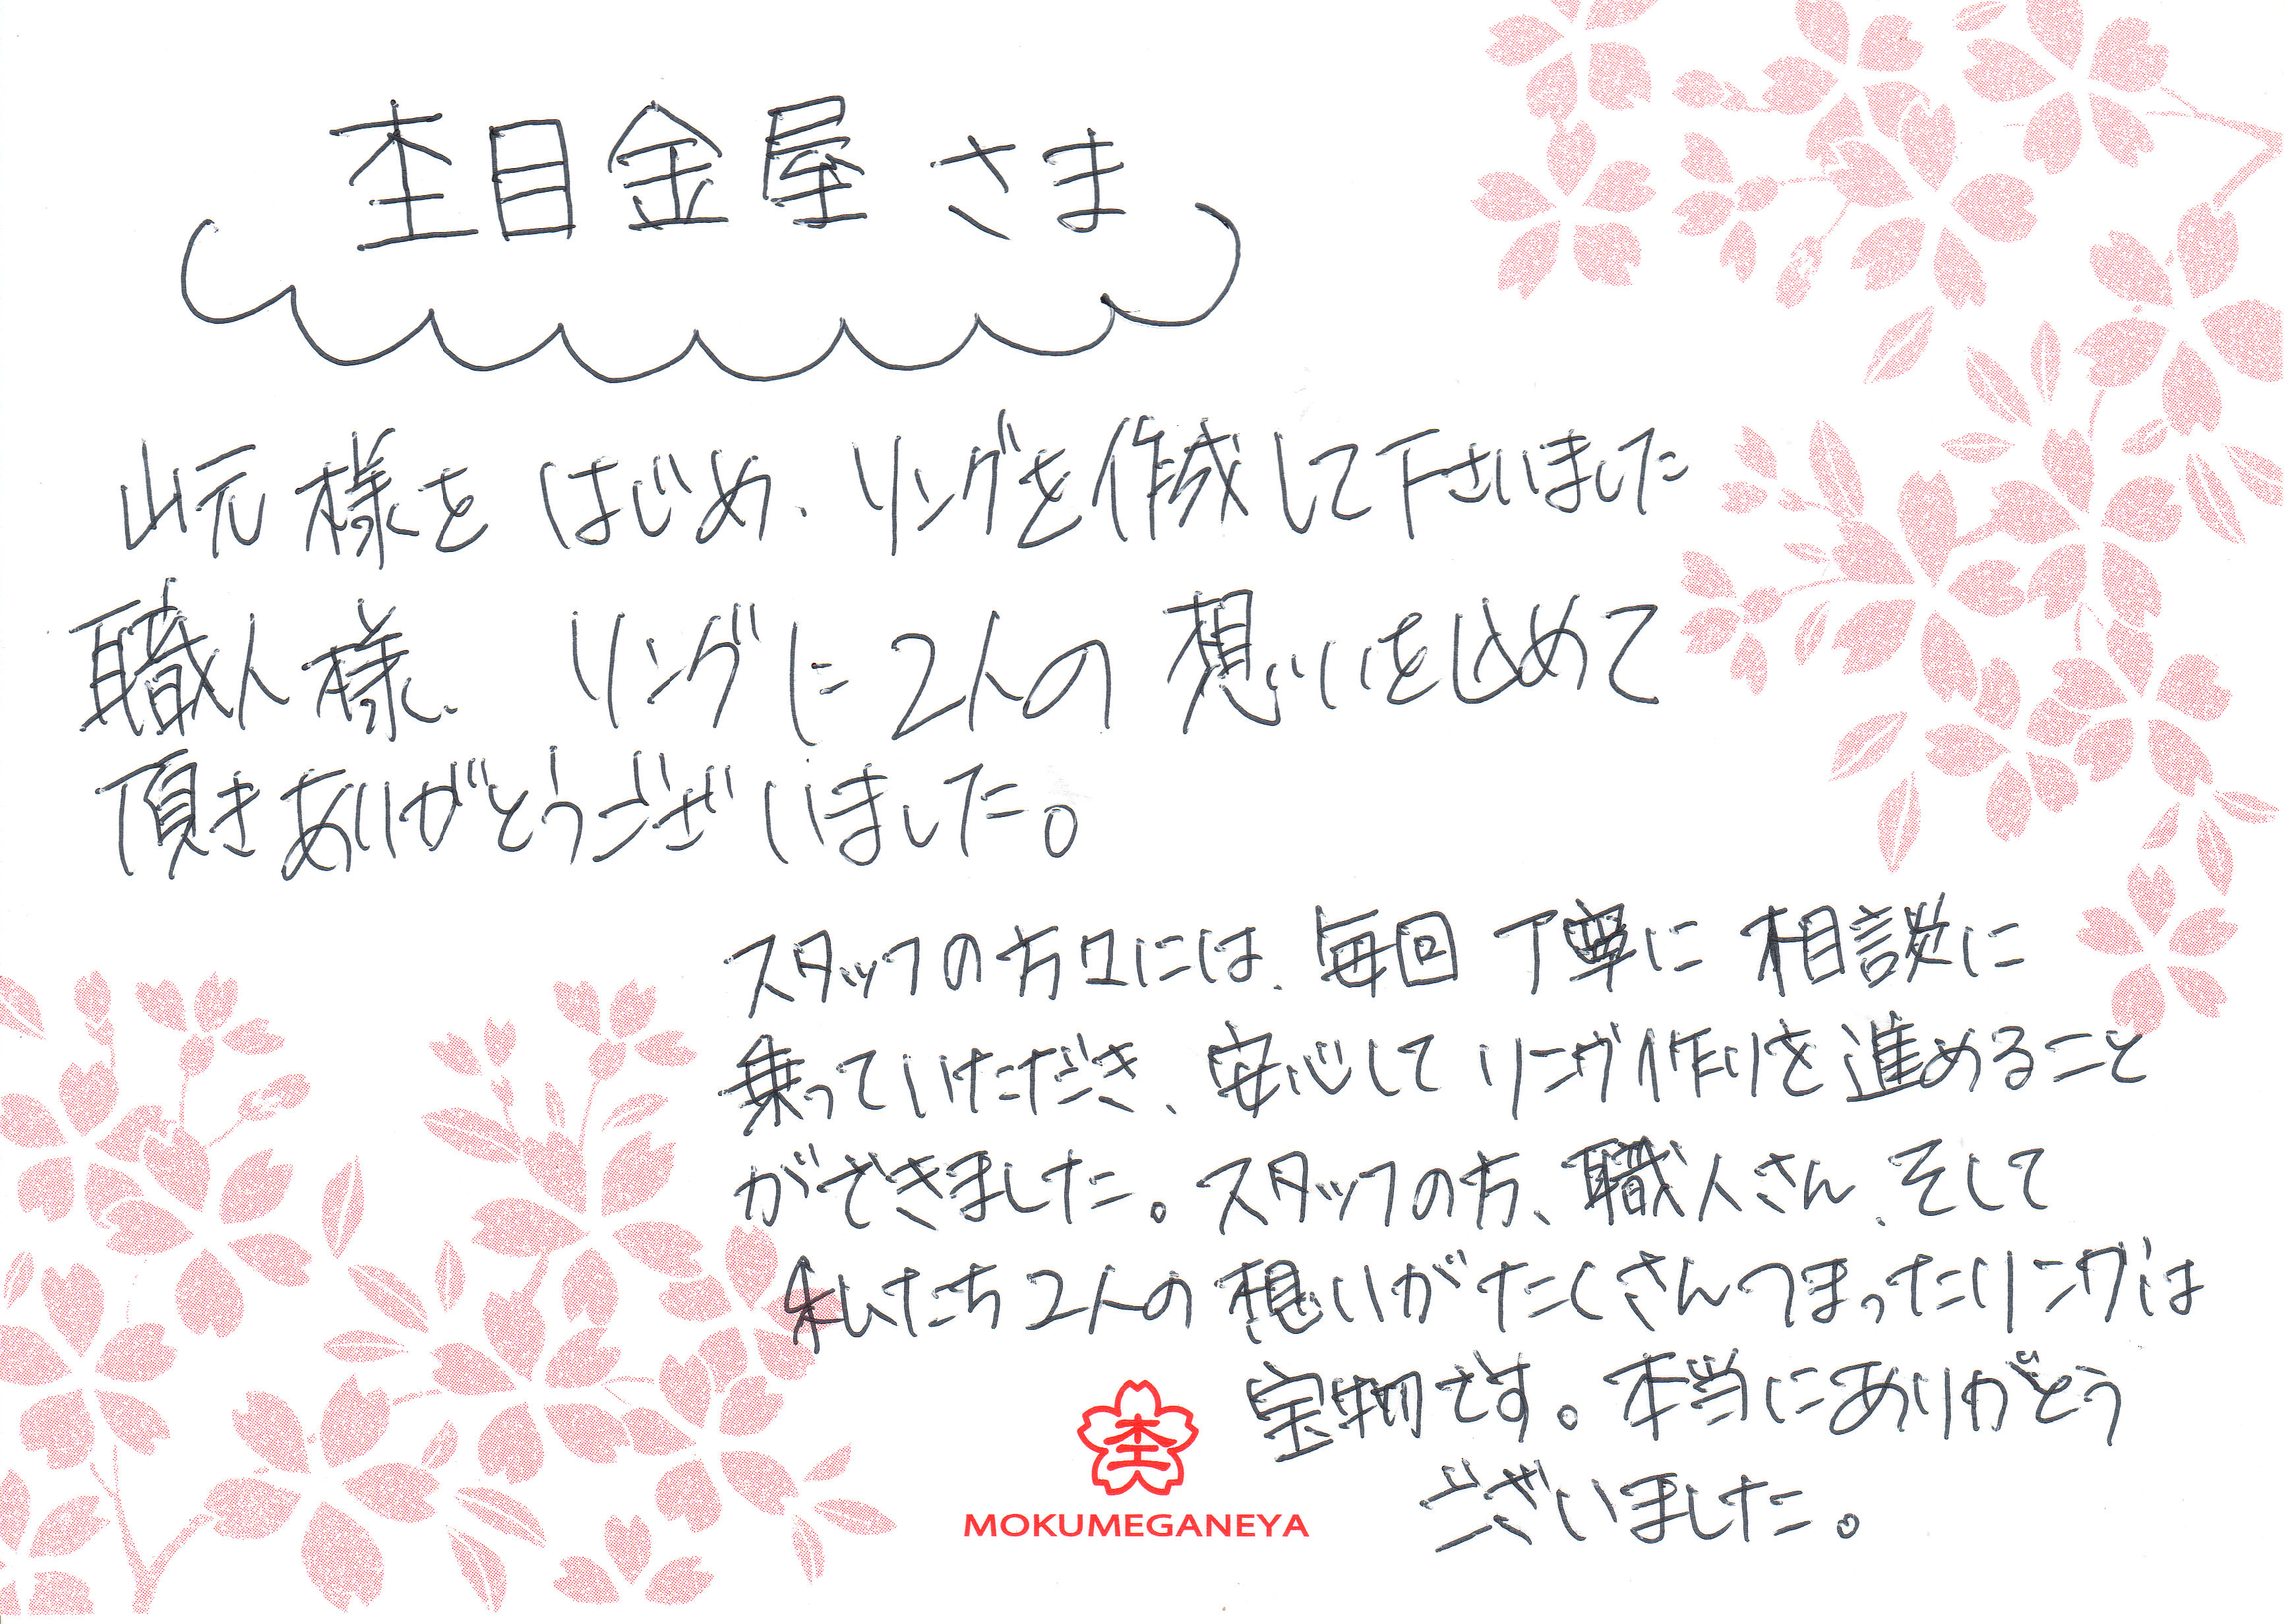 杢目金屋 さま
山元様をはじめ、リングを作成して下さいました
職人様、リングに2人の想いを込めて
頂きありがとうございました。
スタッフの方々には、毎回丁寧に相談に
乗っていただき、安心してリング作りを進めること
ができました。スタッフの方、職人さん、そして
私たち2人の想いがたくさんつまったリングは
宝物です。本当にありがとう
ございました。
杢
MOKUMEGANEYA